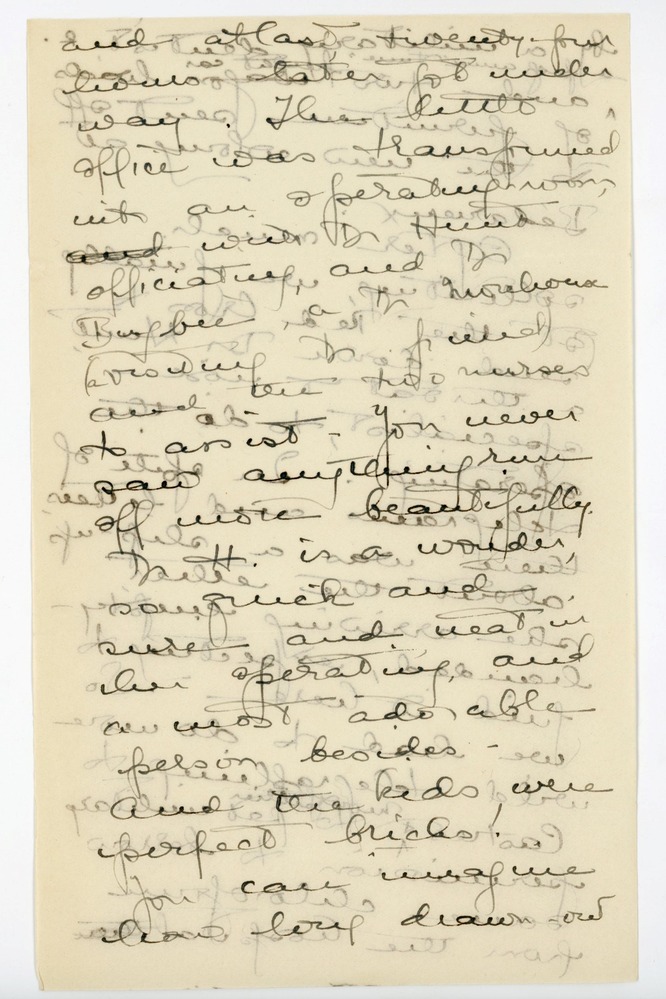 and at last, twenty-four
hours later got under
way. The little
office was transformed
into an operating room,
and with Dr Hunt
officiating, and Dr
Bugbee, a Dr Morehouse
(avoiding Dr friend)
and on two nurses
to assist - You never
saw anything run
off more beautifully.
Dr H. is a wonder,
so quick and
sure and neat in
her operating, and
a most adorable
person besides -
And the kids were
perfect bricks!
You can imagine
how long drawn-out